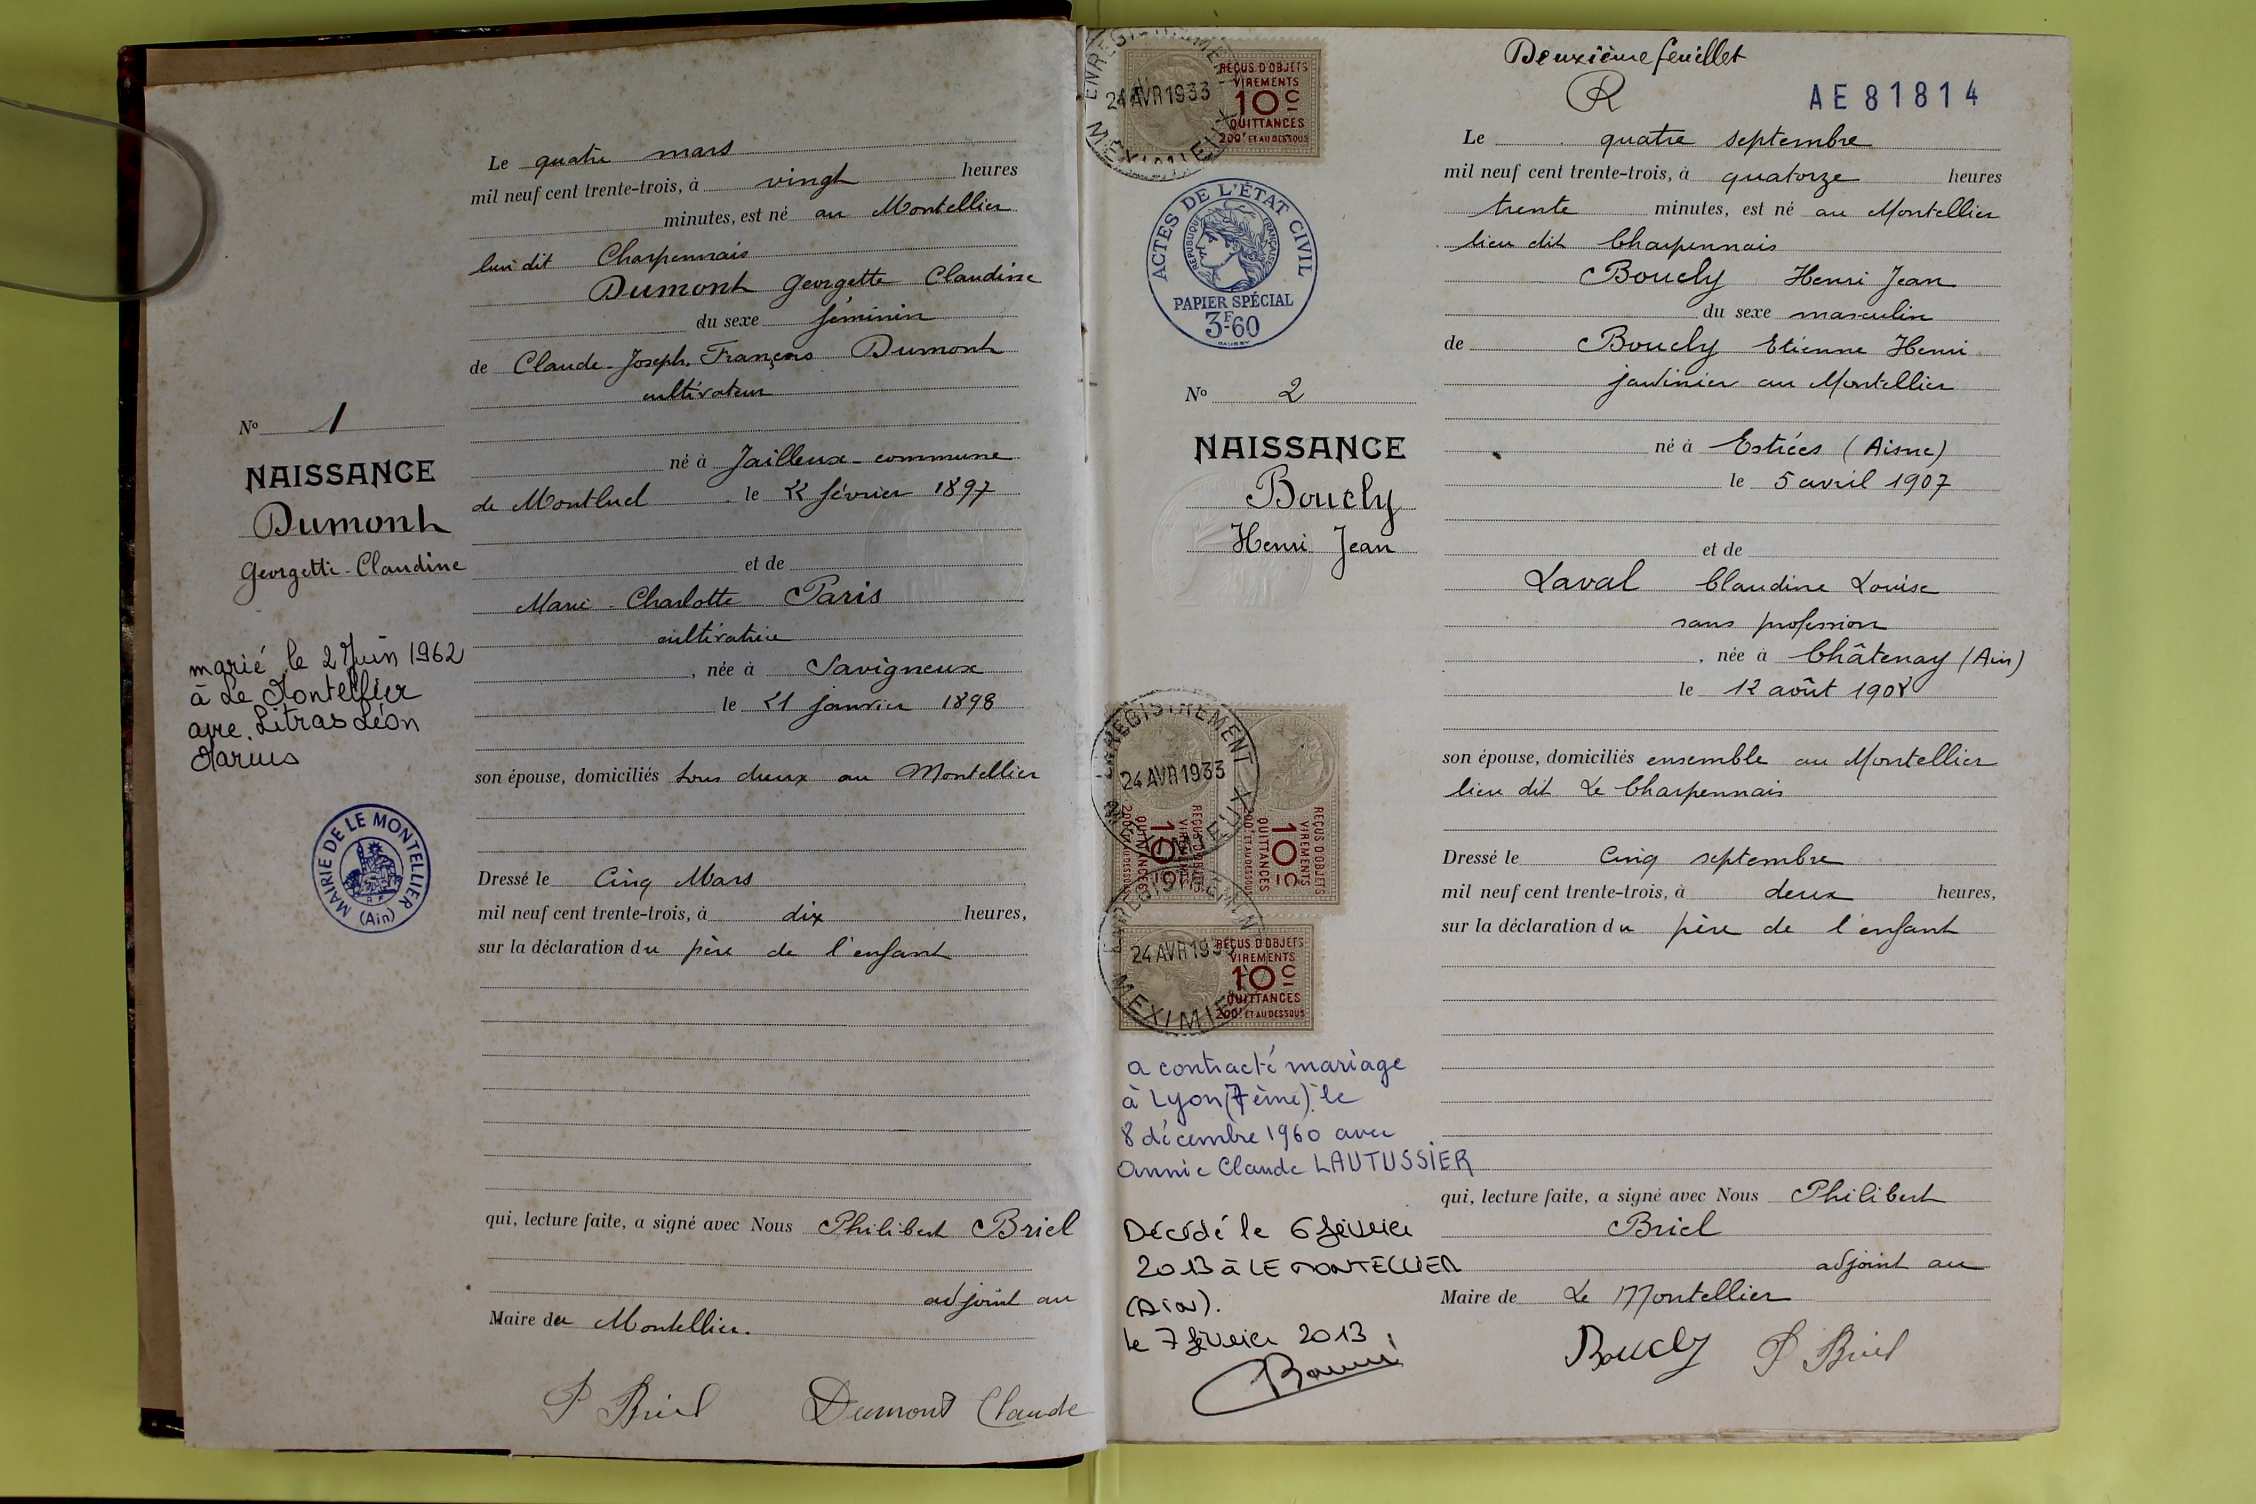 Le quatre mars
mil neuf cent trente-trois, à vingt heures
minutes, est né au Montellier
lieu dit Charpennais
Dumont Georgette Claudine
du sexe féminin
de Claude-Joseph, François Dumont
cultivateur
né à Jailleux - commune
de Montluel le 22 février 1897
et de
Marie-Charlotte Paris
cultivatrice
, née à Savigneux
le 21 janvier 1898
son épouse, domiciliés tous deux au Montellier
Dressé le Cinq Mars
mil neuf cent trente-trois, à dix heures,
sur la déclaration du père de l'enfant
qui, lecture faite, a signé avec Nous Philibert Briel
adjoint au
Maire de Montellier.
P Briel Dumont Claude
No 1
NAISSANCE
Dumont
Georgette-Claudine
marié le 2 Juin 1962
à Le Montellier
avec Litras Léon
Marius
MAIRIE DE LE MONTELLIER
(Ain)
ENREGISTREMENT
24 AVR 1933
MEXIMIEUX
REÇUS D'OBJETS
VIREMENTS
10c
QUITTANCES
200F ET AU DESSOUS
ACTES DE L'ÉTAT CIVIL
RÉPUBLIQUE FRANÇAISE
PAPIER SPÉCIAL
3F-60
No 2
NAISSANCE
Boucly
Henri Jean
ENREGISTREMENT
24 AVR 1933
MEXIMIEUX
REÇUS D'OBJETS
VIREMENTS
10c
QUITTANCES
200F ET AU DESSOUS
REÇUS D'OBJETS
VIREMENTS
10c
QUITTANCES
200F ET AU DESSOUS
ENREGISTREMENT
24 AVR 193
MEXIMIEUX
REÇUS D'OBJETS
VIREMENTS
10c
QUITTANCES
200F ET AU DESSOUS
a contracté mariage
à Lyon (7ème) le
8 décembre 1960 avec
Annie Claude LAUTUSSIER
Décédé le 6 février
2013 à LE MONTELLIER
(Ain).
le 7 février 2013
Deuxième feuillet
R
AE 81814
Le quatre septembre
mil neuf cent trente-trois, à quatorze heures
trente minutes, est né au Montellier
lieu dit Charpennais
Boucly Henri Jean
du sexe masculin
de Boucly Etienne Henri
jardinier au Montellier
né à Estrées (Aisne)
le 5 avril 1907
et de
Laval Claudine Louise
sans profession
, née à Châtenay (Ain)
le 12 août 1908
son épouse, domiciliés ensemble au Montellier
lieu dit Le Charpennais
Dressé le Cinq septembre
mil neuf cent trente-trois, à deux heures,
sur la déclaration du père de l'enfant
qui, lecture faite, a signé avec Nous Philibert
Briel
adjoint au
Maire de Le Montellier
Boucly P Briel